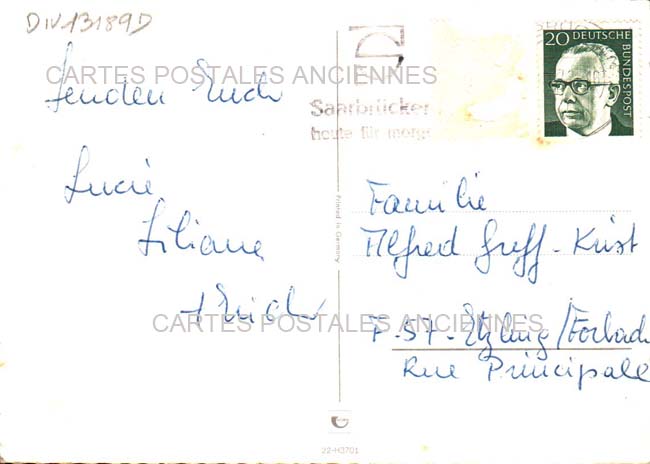 DIV13189D
CARTES POSTALES ANCIENNES
Senden Euch
Lucie
Liliane
+ Erich
Saarbrücken
heute für morgen
20 DEUTSCHE
BUNDESPOST
Printed in Germany
Familie
Alfred Greff-Krist
F-57-Etzling/Forbach
Rue Principale
CARTES POSTALES ANCIENNES
22-H3701